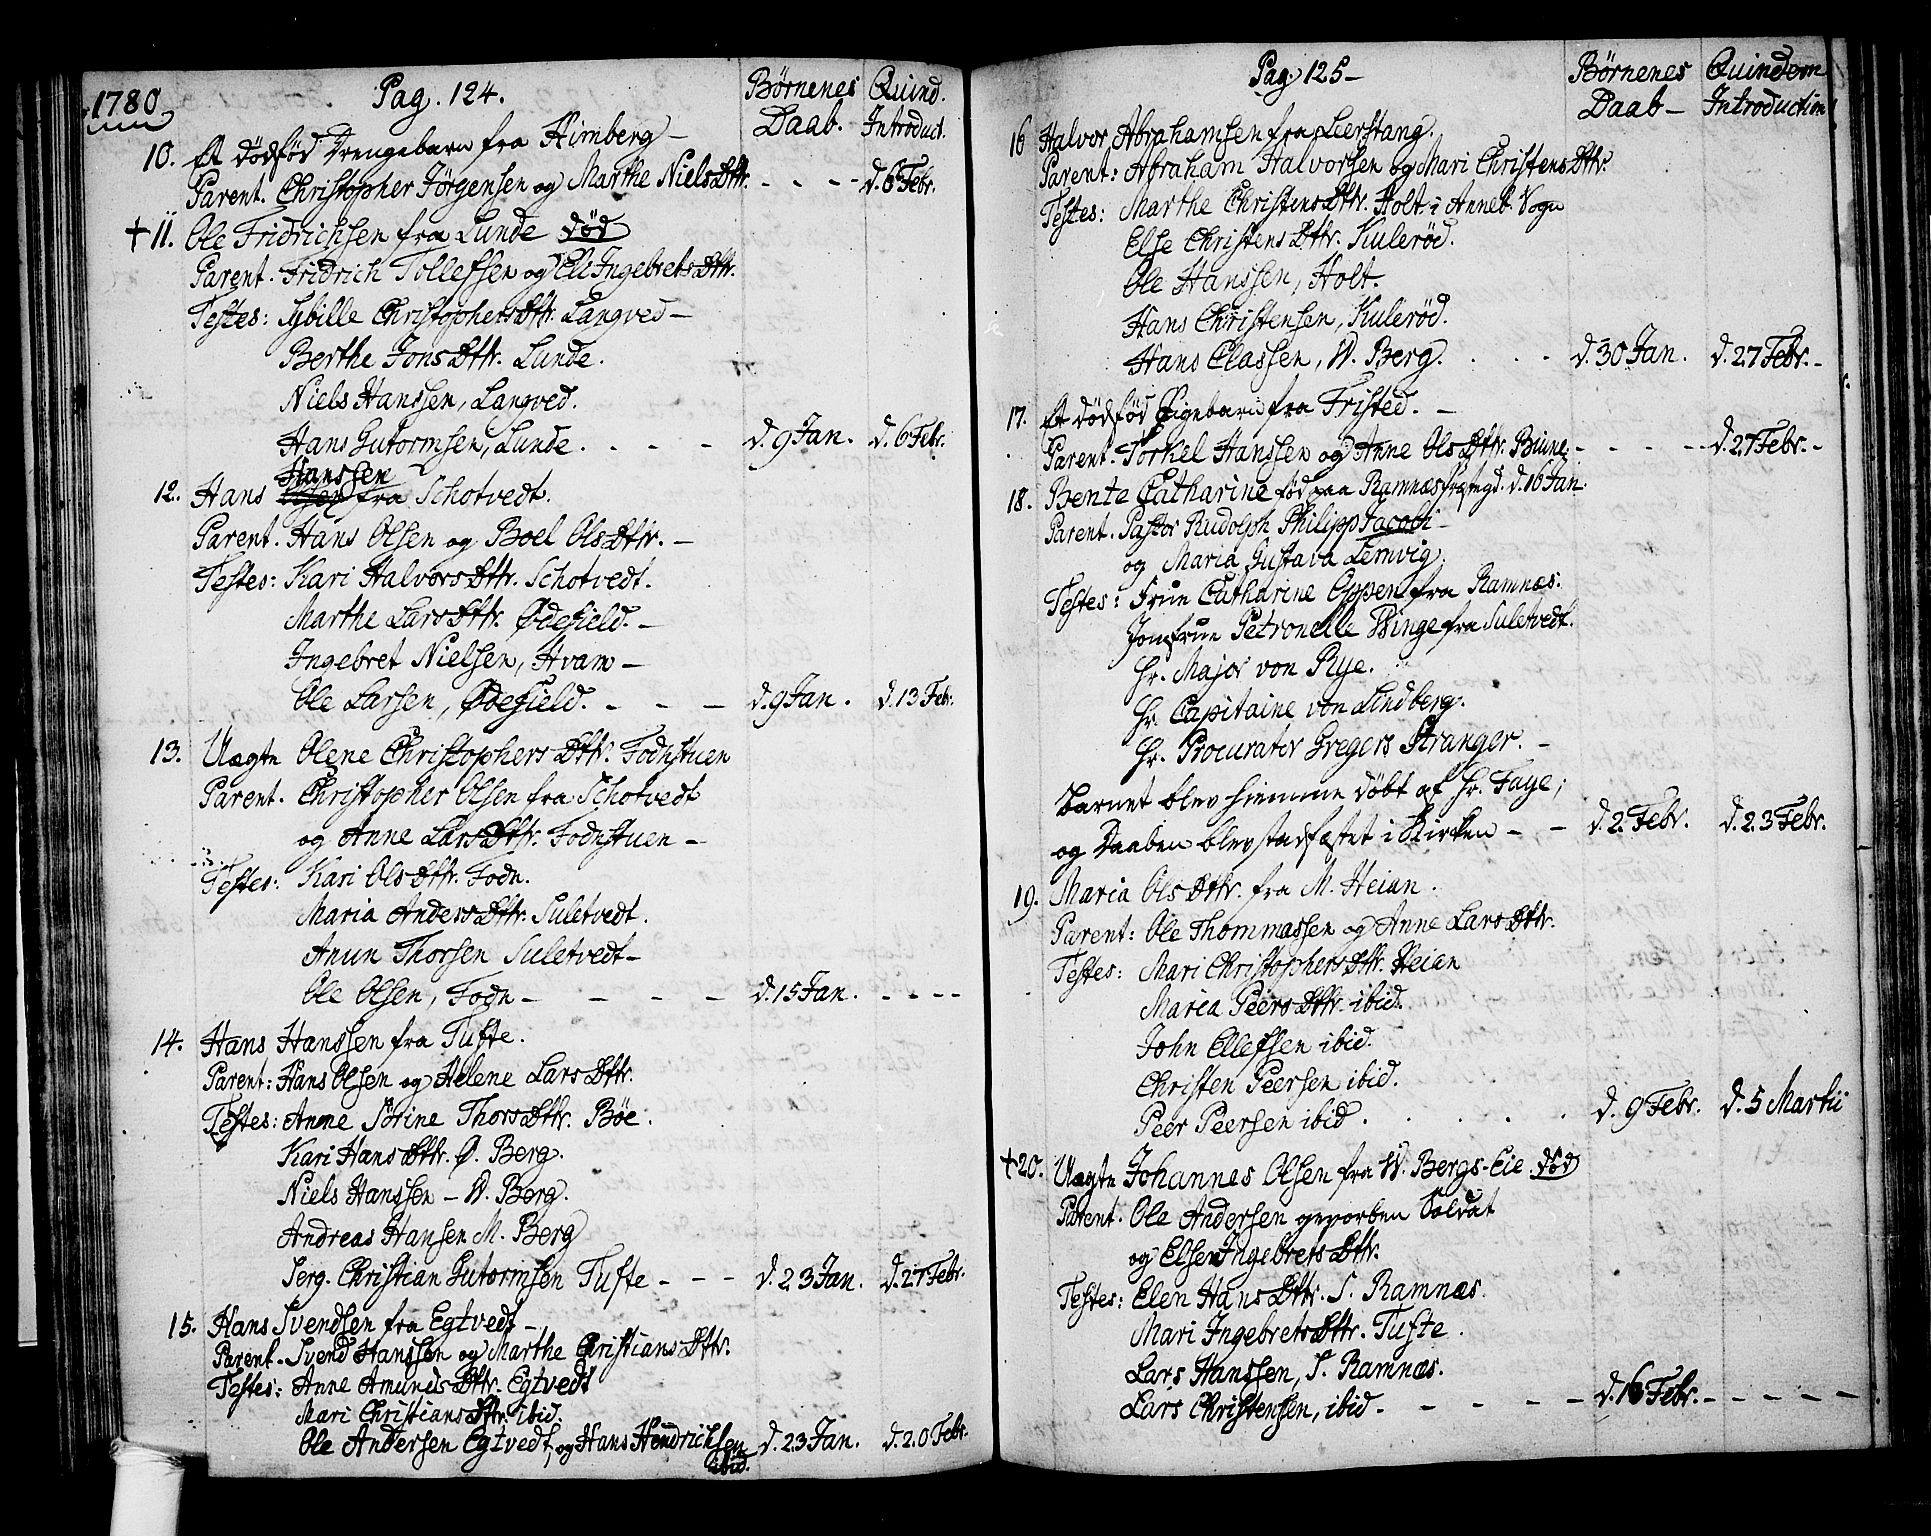 1780
Pag. 124.
Børnenes Daab.
Quind. Introduct.
10. Et dødfød Drengebarn fra Himberg —
Parent. Christopher Jörgensen og Marthe NielsDttr. - - - - d. 6 Febr.
+ 11. Ole Fridrichsen fra Lunde død
Parent. Fridrich Tollefsen og Eli IngebretsDttr.
Testes: Sybille ChristophersDttr. Langved —
Berthe JonsDttr. Lunde.
Niels Hanssen, Langved.
Hans Gutormsen, Lunde . - - - d. 9 Jan. d. 6 Febr.
Hanssen
12. Hans fra Schotvedt.
Parent. Hans Olsen og Boel OlsDttr. —
Testes: Kari HalvorsDttr. Schotvedt.
Marthe LarsDttr. Ødefield. —
Ingebret Nielsen, Hvam —
Ole Larsen, Ødefield. - - — d. 9 Jan. d. 13 Febr.
13. Uægte Olene Christophers Dttr. Fodnstuen
Parent. Christopher Olsen fra Schotvedt
og Anne LarsDttr. Fodnstuen —
Testes: Kari OlsDttr. Fodn.
Maria AndersDttr. Suletvedt.
Anun Thorsen Suletvedt —
Ole Olsen, Fodn — - - - d. 15 Jan. - - - -
14. Hans Hanssen fra Tufte.
Parent: Hans Olsen og Helene Lars Dttr.
Testes: Anne Sørine ThorsDttr. Böe.
Kari HansDttr. Ø. Berg.
Niels Hanssen — W. Berg.
Andreas Hansen M. Berg
Serg. Christian Gutormsen Tufte - - - d. 23 Jan. d. 27 Febr.
15. Hans Svendsen fra Egtvedt —
Parent. Svend Hanssen og Marthe ChristiansDttr.
Testes: Anne AmundsDttr. Egtvedt
Mari ChristiansDttr. ibid.
Ole Andersen Egtvedt, og Hans Hendrichsen d. 23 Jan. d. 20 Febr.
ibid.
Pag. 125 —
Børnenes Daab —
Quindern Introduction
16 Halvor Abrahamsen fra Leerstang.
Parent: Abraham Halvorsen og Mari ChristensDttr.
Testes: Marthe ChristensDttr. Holt i Anneb. Sogn
Else ChristensDttr. Kulerød.
Ole Hanssen, Holt.
Hans Christensen, Kulerød.
Hans Classen, W. Berg. . . - d. 30 Jan. d. 27 Febr. -
17. Et dødfød Pigebarn fra Fristed. —
Parent. Torkel Hanssen og Anne OlsDttr. - - - - - d. 27 Febr. -
18. Bente Catharine fød paa Ramnæs d. 16 Jan.
Parent. Pastor Rudolph Philipp Jacobi —
og Maria Gustava Lemvig.
Testes: Frue Catharine Oppen fra Ramnæs.
Jomfrue Petronelle Winge fra Suletvedt.
Hr. Major von Rye.
Hr. Capitaine von Lindberg.
Hr. Procurator Gregers Stranger. —
Barnet blev hiemme döbt af Hr. Faye;
og Daaben blev stadfæstet i Kirken — - d. 2. Febr. d. 23 Febr.
19. Maria OlsDttr. fra M. Heian.
Parent: Ole Thommassen og Anne LarsDttr.
Testes: Mari ChristophersDttr. Heian
Maria PeersDttr. ibid.
John Ellefsen ibid.
Christen Peersen ibid.
Peer Peersen ibid. . . . . . d. 9 Febr. d. 5 Martii
+ 20. Uægte Johannes Olsen fra W. Bergs-Eie død
Parent. Ole Andersen gevorben Soldat
og Elsen IngebretsDttr.
Testes: Elen HansDttr. S. Ramnæs.
Mari IngebretsDttr. Tufte.
Lars Hanssen, S. Ramnæs.
Lars Christensen, ibid. - - - - - d. 16 Febr. - - - - -